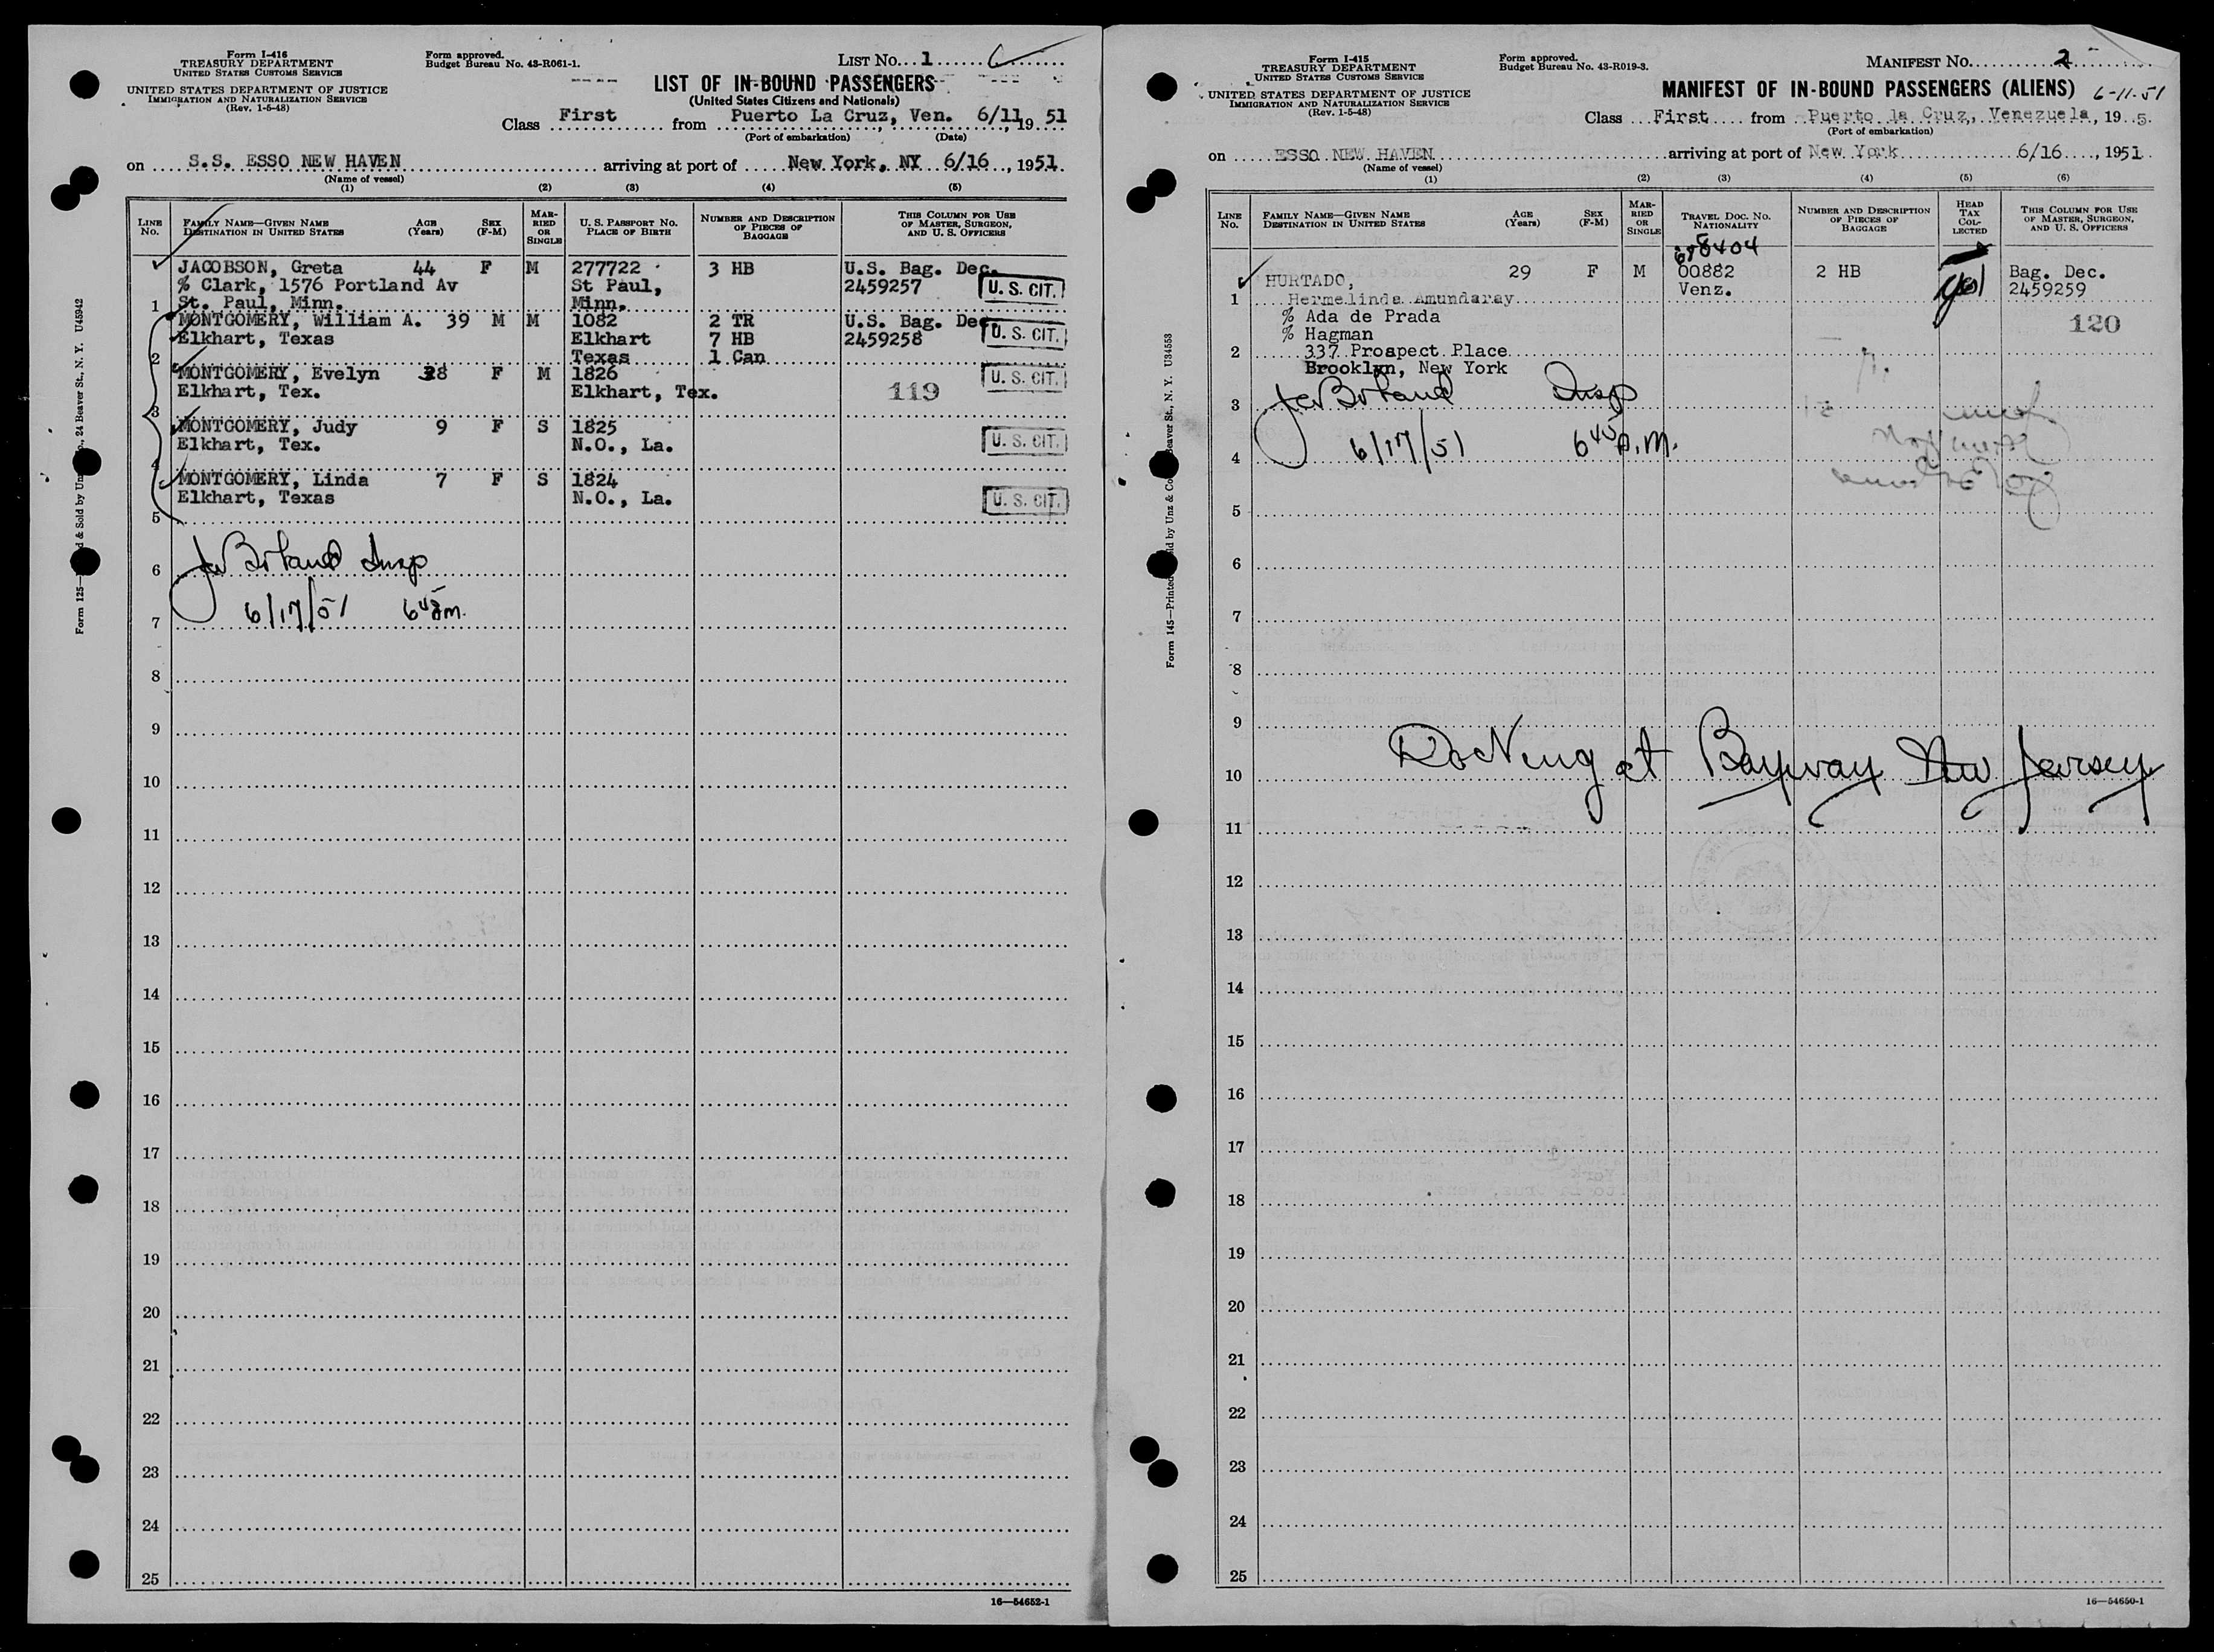 Form I-416
TREASURY DEPARTMENT
UNITED STATES CUSTOMS SERVICE
UNITED STATES DEPARTMENT OF JUSTICE
IMMIGRATION AND NATURALIZATION SERVICE
(Rev. 1-5-48)
Form approved.
Budget Bureau No. 43-R061-1.
LIST No. 1
LIST OF IN-BOUND PASSENGERS
(United States Citizens and Nationals)
Class First from Puerto La Cruz, Ven. 6/11 19 51
(Port of embarkation) (Date)
on S.S. ESSO NEW HAVEN arriving at port of New York, NY 6/16, 1951.
(Name of vessel)
(1) (2) (3) (4) (5)
LINE No. FAMILY NAME—GIVEN NAME DESTINATION IN UNITED STATES AGE (Years) SEX (F-M) MARRIED OR SINGLE U. S. PASSPORT NO. PLACE OF BIRTH NUMBER AND DESCRIPTION OF PIECES OF BAGGAGE THIS COLUMN FOR USE OF MASTER, SURGEON, AND U. S. OFFICERS
JACOBSON, Greta 44 F M 277722 3 HB U.S. Bag. Dec.
% Clark, 1576 Portland Av St Paul, 2459257 U. S. CIT.
1 St. Paul, Minn. Minn.
MONTGOMERY, William A. 39 M M 1082 2 TR U.S. Bag. Dec.
Elkhart, Texas Elkhart 7 HB 2459258 U. S. CIT.
2 Texas 1 Can
MONTGOMERY, Evelyn 38 F M 1826 U. S. CIT.
Elkhart, Tex. Elkhart, Tex. 119
3
MONTGOMERY, Judy 9 F S 1825
Elkhart, Tex. N.O., La. U. S. CIT.
4
MONTGOMERY, Linda 7 F S 1824
Elkhart, Texas N.O., La. U. S. CIT.
5
6 Boland Insp
7 6/17/51 6 45 am.
8
9
10
11
12
13
14
15
16
17
18
19
20
21
22
23
24
25
16—54652-1
24 Beaver St., N. Y. U45942
Form 125—
& Sold by Unz
Form I-415
TREASURY DEPARTMENT
UNITED STATES CUSTOMS SERVICE
UNITED STATES DEPARTMENT OF JUSTICE
IMMIGRATION AND NATURALIZATION SERVICE
(Rev. 1-5-48)
Form approved.
Budget Bureau No. 43-R019-3.
MANIFEST No. 2
MANIFEST OF IN-BOUND PASSENGERS (ALIENS) 6-11-51
Class First from Puerto la Cruz, Venezuela, 19 5
(Port of embarkation)
on ESSO NEW HAVEN arriving at port of New York 6/16, 1951
(Name of vessel)
(1) (2) (3) (4) (5) (6)
LINE No. FAMILY NAME—GIVEN NAME DESTINATION IN UNITED STATES AGE (Years) SEX (F-M) MARRIED OR SINGLE TRAVEL DOC. NO. NATIONALITY NUMBER AND DESCRIPTION OF PIECES OF BAGGAGE HEAD TAX COLLECTED THIS COLUMN FOR USE OF MASTER, SURGEON, AND U. S. OFFICERS
HURTADO, 29 F M 00882 2 HB Bag. Dec.
1 Hermelinda Amundaray Venz. 2459259
% Ada de Prada 120
% Hagman
2 337 Prospect Place
Brooklyn, New York
3 Boland Insp
4 6/17/51 6 45 A.M.
5
6
7
8
9
10 Docking at Bayway New Jersey
11
12
13
14
15
16
17
18
19
20
21
22
23
24
25
16—54650-1
Beaver St., N. Y. U34553
Form 145—Printed
by Unz & Co